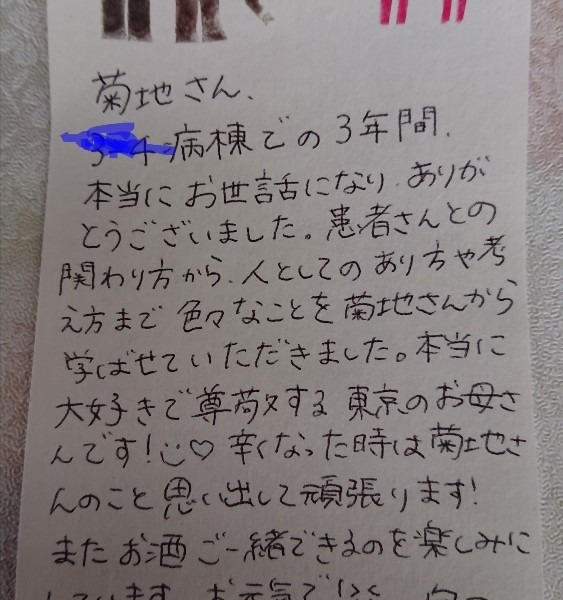 菊地さん、
病棟での3年間、
本当にお世話になり、ありが
とうございました。患者さんとの
関わり方から、人としてのあり方や考
え方まで色々なことを菊地さんから
学ばせていただきました。本当に
大好きで尊敬する東京のお母さ
んです!♡辛くなった時は菊地さ
んのこと思い出して頑張ります!
またお酒ご一緒できるのを楽しみに
しています。お元気で